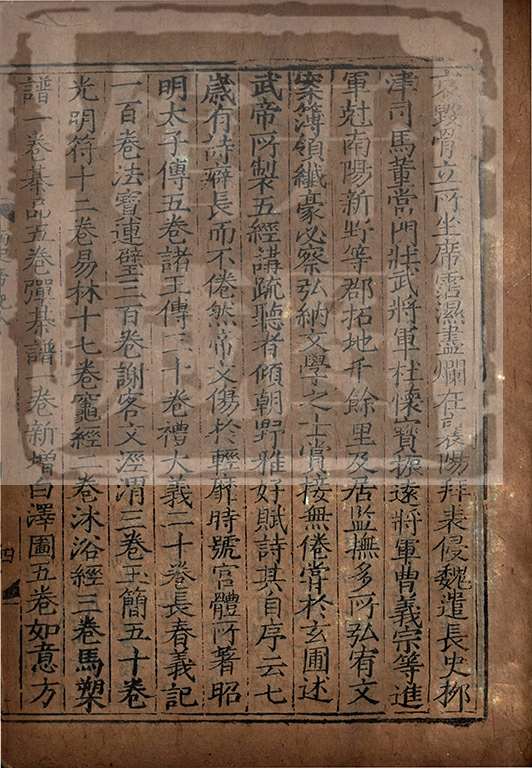 哀毀骨立所坐席霑濕盡爛在襄陽拜表侵魏遣長史柳
津司馬董當門壯武將軍杜懷寶振遠將軍曹義宗等進
軍尅南陽新野等郡拓地千餘里及居監撫多所弘宥文
案簿領纖豪必察弘納文學之士賞接無倦嘗於玄圃述
武帝所製五經講疏聽者傾朝野雅好賦詩其自序云七
歲有詩癖長而不倦然帝文傷於輕靡時號宮體所著昭
明太子傳五卷諸王傳三十卷禮大義二十卷長春義記
一百卷法寶連璧三百卷謝客文涇渭三卷玉簡五十卷
光明符十二卷易林十七卷竈經二卷沐浴經三卷馬槊
譜一卷棊品五卷彈棊譜一卷新增白澤圖五卷如意方
四